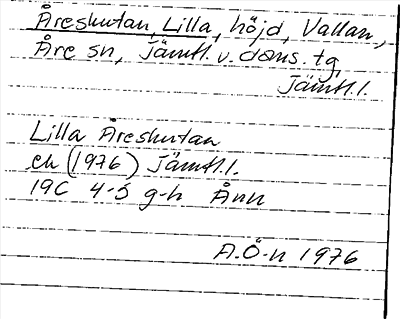 Åreskutan, Lilla, höjd, Vallan,
Åre sn, Jämtl. v. doms. tg,
Jämtl.l.
Lilla Åreskutan
ek (1976) Jämtl.l.
19C 4-5 g-h Ånn
A.Ö-n 1976